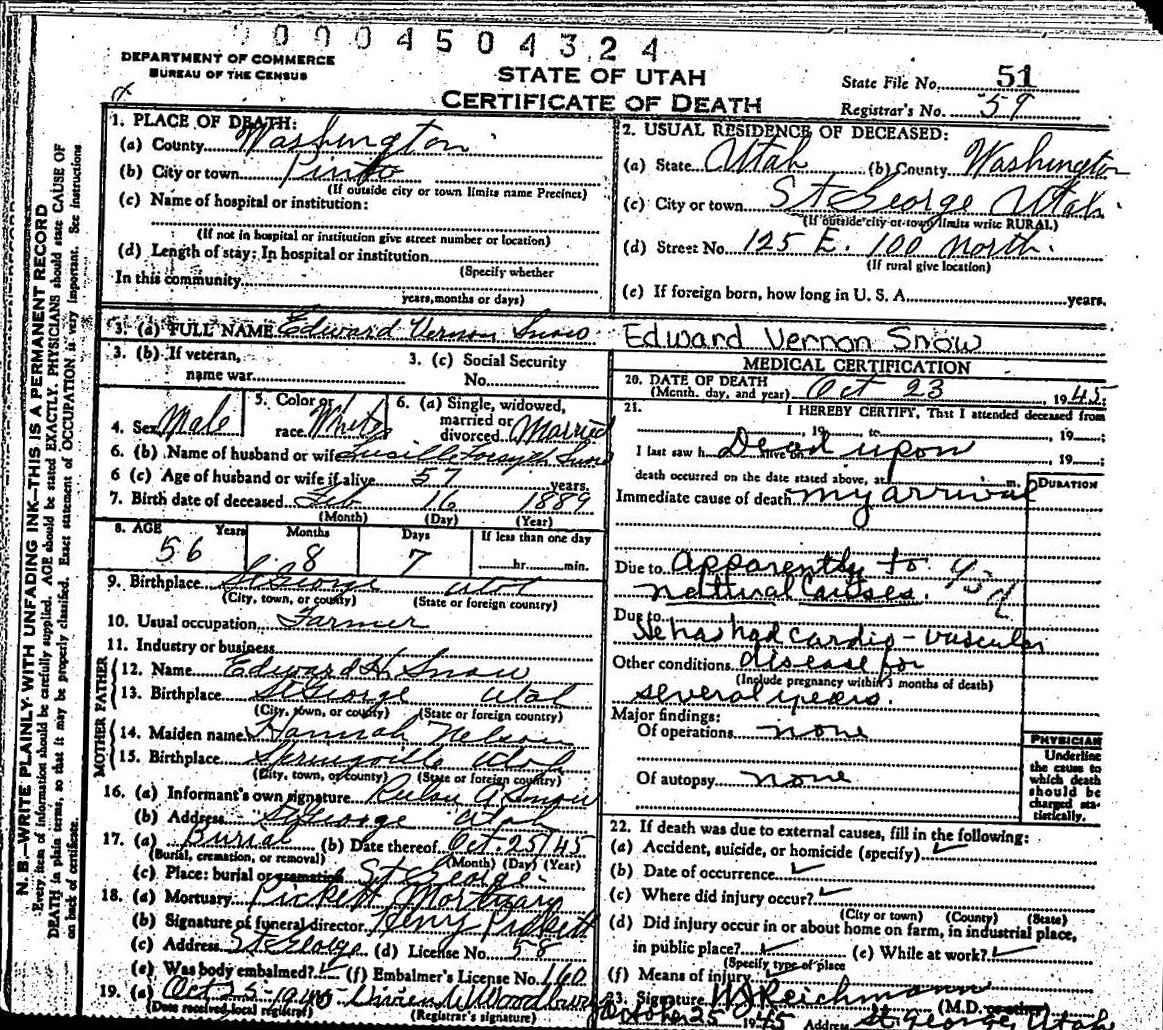 00004504324
DEPARTMENT OF COMMERCE
BUREAU OF THE CENSUS
STATE OF UTAH
CERTIFICATE OF DEATH
State File No. 51
Registrar's No. 59
N. B.—WRITE PLAINLY-WITH UNFADING INK—THIS IS A PERMANENT RECORD
Every item of information should be carefully supplied. AGE should be stated EXACTLY. PHYSICIANS should state CAUSE OF
DEATH in plain terms, so that it may be properly classified. Exact statement of OCCUPATION is very important. See instructions
on back of certificate.
1. PLACE OF DEATH:
(a) County Washington
(b) City or town Pinto
(If outside city or town limits name Precinct)
(c) Name of hospital or institution:
(If not in hospital or institution give street number or location)
(d) Length of stay: In hospital or institution
(Specify whether
In this community
years, months or days)
2. USUAL RESIDENCE OF DECEASED:
(a) State Utah (b) County Washington
(c) City or town St George Utah
(If outside city or town limits write RURAL)
(d) Street No. 125 E. 100 North.
(If rural give location)
(e) If foreign born, how long in U. S. A. years.
3. (a) FULL NAME Edward Vernon Snow Edward Vernon Snow
3. (b) If veteran,
name war
3. (c) Social Security
No.
4. Sex Male
5. Color or
race White
6. (a) Single, widowed,
married or
divorced Married
6. (b) Name of husband or wife Snow
6 (c) Age of husband or wife if alive 57 years.
7. Birth date of deceased Feb 16 1889
(Month) (Day) (Year)
8. AGE Years Months Days If less than one day
56 8 7 hr. min.
9. Birthplace St George Utah
(City, town, or county) (State or foreign country)
10. Usual occupation Farmer
11. Industry or business
FATHER
12. Name Edward H. Snow
13. Birthplace St George Utah
(City, town, or county) (State or foreign country)
MOTHER
14. Maiden name Hannah Nelson
15. Birthplace Springville Utah
(City, town, or county) (State or foreign country)
16. (a) Informant's own signature Snow
(b) Address St George Utah
17. (a) Burial (b) Date thereof Oct. 25/45
(Burial, cremation, or removal) (Month) (Day) (Year)
(c) Place: burial or cremation St George.
18. (a) Mortuary Pickett Mortuary
(b) Signature of funeral director Henry Pickett
(c) Address St George (d) License No. 58
(e) Was body embalmed? ✓ (f) Embalmer's License No. 160
19. (a) Oct 25-1945 Woodbury
(Date received local registrar) (Registrar's signature)
MEDICAL CERTIFICATION
20. DATE OF DEATH
(Month, day, and year) Oct 23, 1945.
21. I HEREBY CERTIFY, That I attended deceased from
, 19 to , 19 ;
I last saw h alive on Dead upon 19 ;
death occurred on the date stated above, at m.
DURATION
Immediate cause of death my arrival
Due to apparently to 93d
natural causes.
Due to
He has had cardio-vascular
Other conditions disease for
(Include pregnancy within 3 months of death)
several years.
Major findings:
Of operations none
Of autopsy none
PHYSICIAN
Underline
the cause to
which death
should be
charged sta-
tistically.
22. If death was due to external causes, fill in the following:
(a) Accident, suicide, or homicide (specify) ✓
(b) Date of occurrence ✓
(c) Where did injury occur? ✓
(City or town) (County) (State)
(d) Did injury occur in or about home on farm, in industrial place,
in public place? ✓ (e) While at work? ✓
(Specify type of place
(f) Means of injury ✓
23. Signature Reichmann (M.D. or other)
October 25 1945 Address St. George, Utah